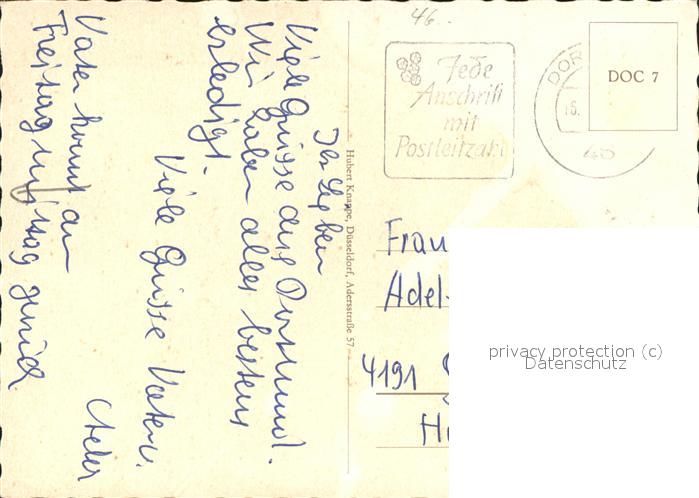 Ihr Lieben
Viele Grüsse aus Dortmund.
Wir haben alles bestens
erledigt.
Viele Grüsse Vater.
Vater kommt am
Freitag mittag zurück
Hubert Knappe, Düsseldorf, Adersstraße 57
46.
Jede
Anschrift
mit
Postleitzahl
DOR
DOC 7
46
Frau
Adel
4191
privacy protection (c)
Datenschutz